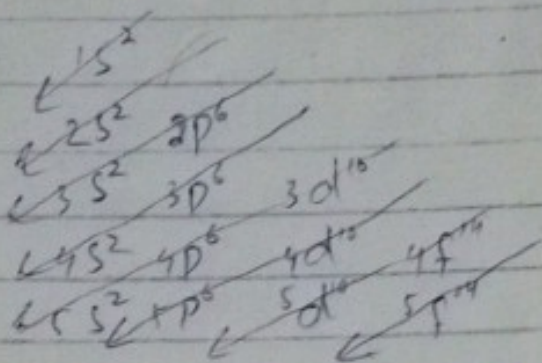 1S²
2S² 2p⁶
3S² 3p⁶ 3d¹⁰
4S² 4p⁶ 4d¹⁰ 4f¹⁴
5S² 5p⁶ 5d¹⁰ 5f¹⁴